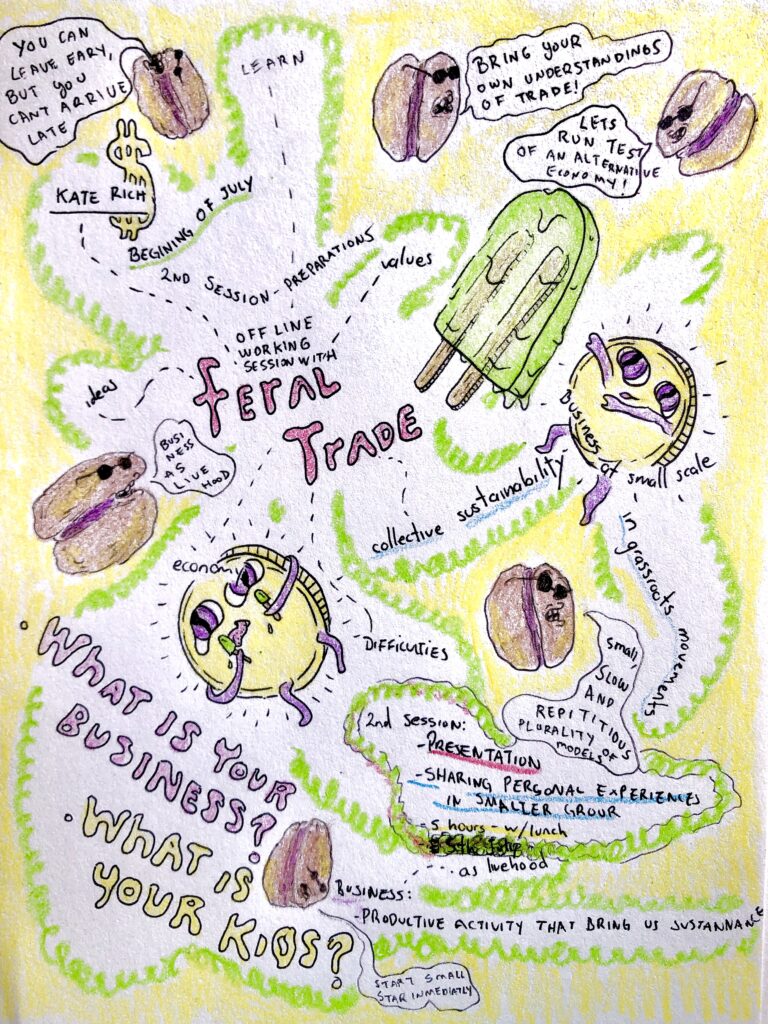 YOU CAN
LEAVE EARY,
BUT YOU
CANT ARRIVE
LATE
LEARN
BRING YOUR
OWN UNDERSTANDINGS
OF TRADE!
LETS
RUN TEST
OF AN ALTERNATIVE
ECONOMY!
KATE RICH
BEGINING OF JULY
2ND SESSION - PREPARATIONS
values
OFF LINE
WORKING
SESSION WITH
feral
TRADE
ideas
BUSI
NESS
AS
LIVE
HOOD
Business at small scale
collective sustainability
in grassroots movements
economy
DIFFICULTIES
small,
SLOW
AND
REPITITIOUS
PLURALITY OF
MODELS
• WHAT IS YOUR
BUSINESS?
• WHAT IS
YOUR KIDS?
2nd session:
- PRESENTATION
- SHARING PERSONAL EXPERIENCES
IN SMALLER GROUP
- 5 hours - w/lunch
as livehood
BUSINESS:
- PRODUCTIVE ACTIVITY THAT BRING US SUSTANNANCE
START SMALL
STAR INMEDIATLY